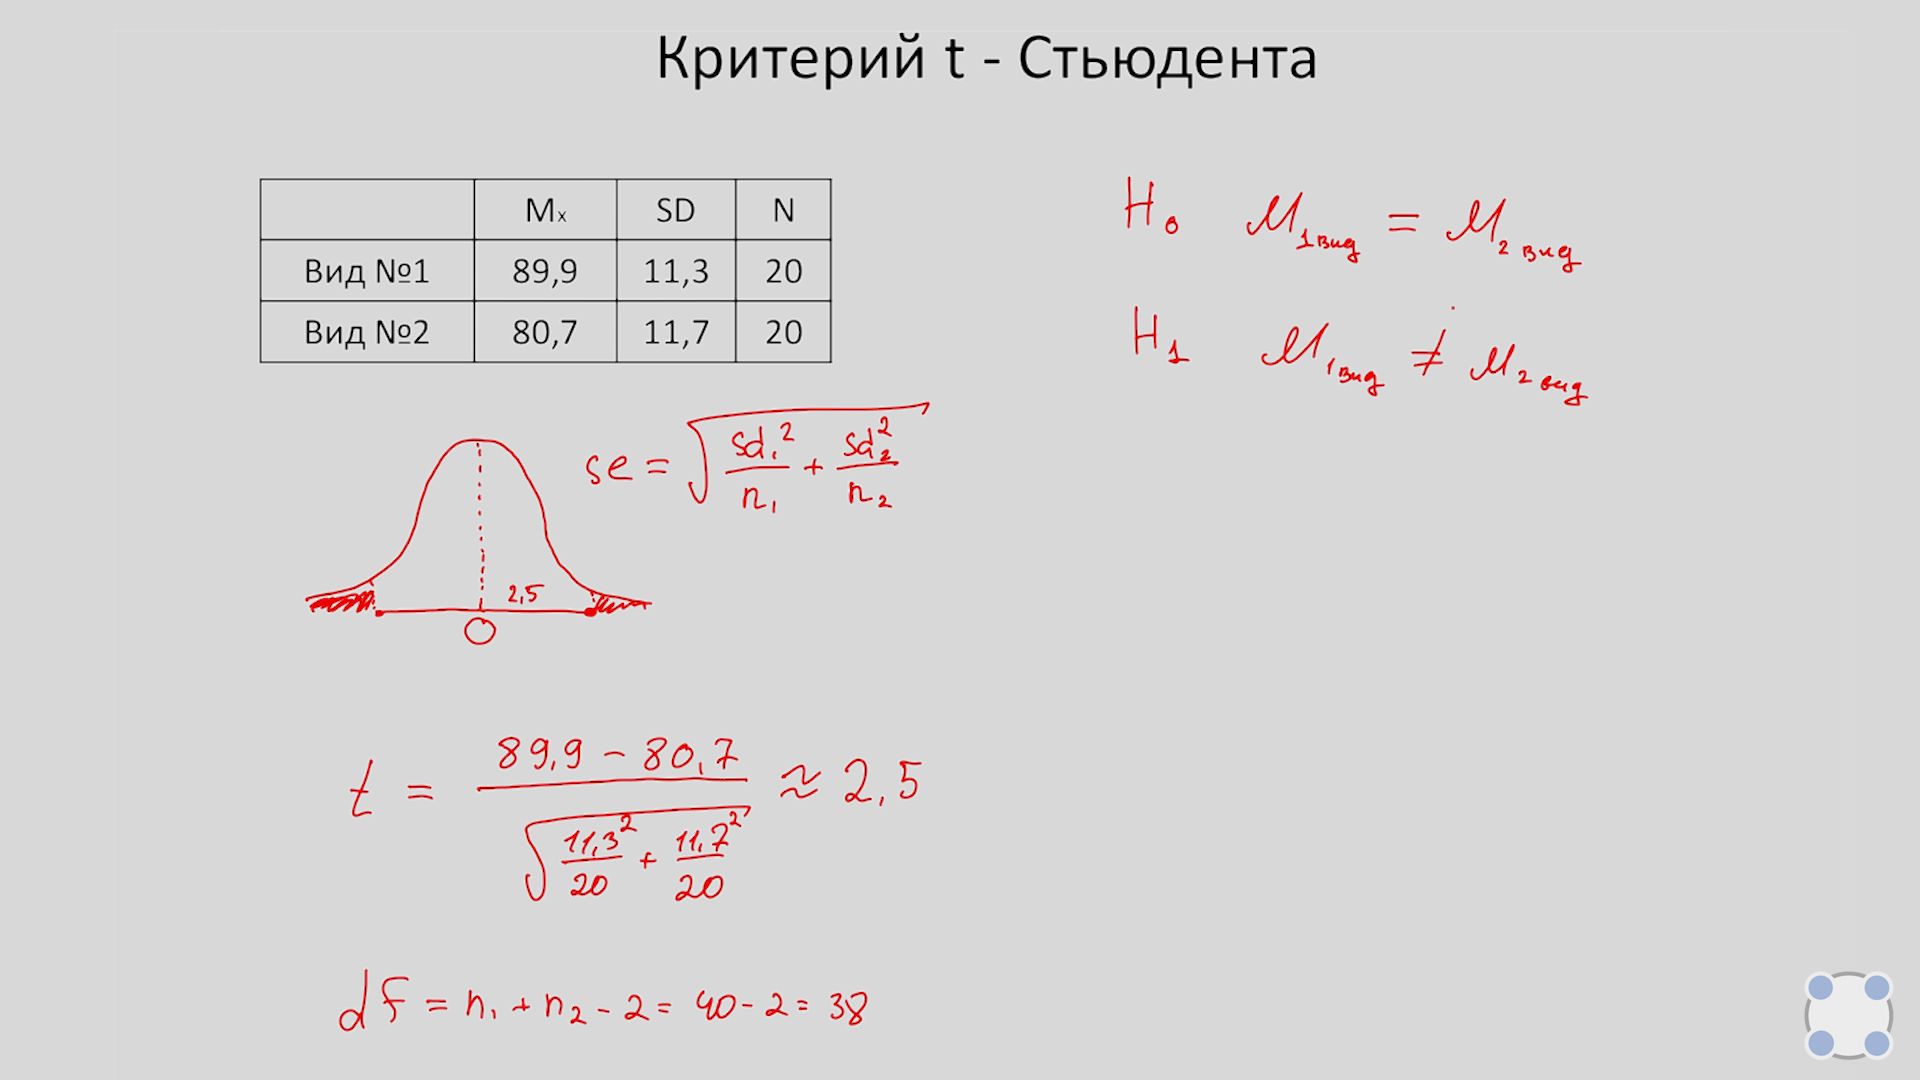 Критерий t - Стьюдента
Mx SD N
Вид №1 89,9 11,3 20
Вид №2 80,7 11,7 20
H₀ M₁ вид = M₂ вид
H₁ M₁ вид ≠ M₂ вид
se = √(sd₁²/n₁ + sd₂²/n₂)
2,5
0
t = (89,9 − 80,7) / √(11,3²/20 + 11,7²/20) ≈ 2,5
df = n₁ + n₂ − 2 = 40 − 2 = 38